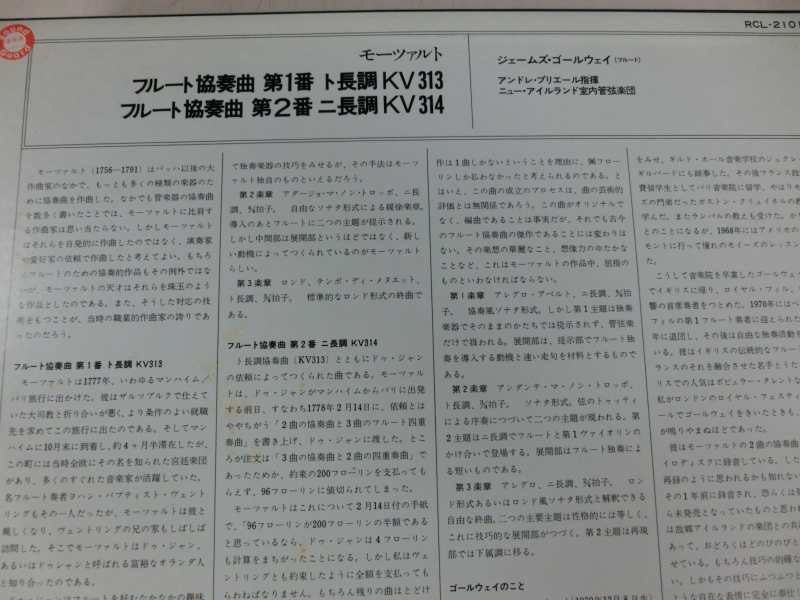 RCL-2101
モーツァルト
フルート協奏曲 第1番 ト長調 KV313
フルート協奏曲 第2番 ニ長調 KV314
ジェームズ・ゴールウェイ (フルート)
アンドレ・プリエール指揮
ニュー・アイルランド室内管弦楽団
モーツァルト (1756—1791) はバッハ以後の大
作曲家のなかで、もっとも多くの種類の楽器のた
めに協奏曲を作曲した。なかでも管楽器の協奏曲
を数多く書いたことでは、モーツァルトに比肩す
る作曲家は思い当たらない。しかしモーツァルト
はそれらを自発的に作曲したのではなく、演奏家
や愛好家の依頼で作曲したと考えてよい。もちろ
んフルートのための協奏的作品もその例外ではな
いが、モーツァルトの天才はそれらを珠玉のよう
な作品としたのである。また、そうした対応の技
術をもつことが、当時の職業的作曲家の誇りであ
ったのだろう。
フルート協奏曲 第1番 ト長調 KV313
モーツァルトは1777年、いわゆるマンハイム／
パリ旅行に出かけた。彼はザルツブルクで仕えて
いた大司教と折り合いが悪く、より条件のよい就職
先を求めてこの旅行に出たのである。そしてマン
ハイムに10月末に到着し、約4ヶ月半滞在したが、
この町には当時全欧にその名を知られた宮廷楽団
があり、多くのすぐれた音楽家が活躍していた。
名フルート奏者ヨハン・バプティスト・ヴェント
リングもその一人だったが、モーツァルトは彼と
親しくなり、ヴェントリングの兄の家もしばしば
訪問した。そこでモーツァルトはドゥ・ジャン、
あるいはドゥシャンと呼ばれる富裕なオランダ人
と知り合ったのである。
て独奏楽器の技巧をみせるが、その手法はモーツ
ァルト独自のものといえるだろう。
第2楽章 アダージョ・マ・ノン・トロッポ、ニ長
調、4/4拍子。 自由なソナタ形式による緩徐楽章。
導入のあとフルートに二つの主題が提示される。
しかし中間部は展開部というほどではなく、新し
い動機によってつくられているのがモーツァルト
らしい。
第3楽章 ロンド、テンポ・ディ・メヌエット、
ト長調、3/4拍子。 標準的なロンド形式の終曲で
ある。
フルート協奏曲 第2番 ニ長調 KV314
ト長調協奏曲 (KV313) とともにドゥ・ジャン
の依頼によってつくられた曲である。モーツァル
トは、ドゥ・ジャンがマンハイムからパリに出発
する前日、すなわち1778年2月14日に、依頼とは
ややちがう「2曲の協奏曲と3曲のフルート四重
奏曲」を書き上げ、ドゥ・ジャンに渡した。とこ
ろが注文は「3曲の協奏曲と2曲の四重奏曲」で
あったためか、約束の200フローリンを支払っても
らえず、96フローリンに値切られてしまった。
モーツァルトはこれについて2月14日付の手紙
で、「96フローリンが200フローリンの半額である
と思っているなら、ドゥ・ジャンは4フローリン
も計算をまちがったことになる。しかし私はヴェ
ントリングとも約束したように全額を支払っても
らわねばなりません。もちろん残りの曲はとどけ
作は1曲しかないということを理由に、96フロー
リンしか払わなかったと考えられるのである。と
はいえ、この曲の成立のプロセスは、曲の芸術的
評価とは無関係であろう。この曲がオリジナルで
なく、編曲であることは事実だが、それでも古今
のフルート協奏曲の傑作であることには変わりは
ない。その楽想の華麗なこと、想像力のゆたかな
ことなど、これはモーツァルトの作品中、屈指の
ものといわなければならない。
第1楽章 アレグロ・アペルト、ニ長調、4/4拍
子。 協奏風ソナタ形式。しかし第1主題は独奏
楽器でそのままのかたちでは提示されず、管弦楽
だけで扱われる。展開部は、提示部でフルート独
奏を導入する動機と速い走句を材料とするもので
ある。
第2楽章 アンダンテ・マ・ノン・トロッポ、
ト長調、3/4拍子。 ソナタ形式。弦のトゥッティ
による序奏につづいて二つの主題が現われる。第
2主題はニ長調でフルートと第1ヴァイオリンの
かけ合いで登場する。展開部はフルート独奏によ
る短いものである。
第3楽章 アレグロ、ニ長調、2/4拍子。 ロン
ド形式あるいはロンド風ソナタ形式と解釈できる
自由な終曲。二つの主要主題は性格的には等しく、
これに技巧的な展開部がつづく。第2主題は再現
部では下属調に移る。
ゴールウェイのこと
をみせ、ギルド・ホール音楽学校のジョフレ
ギルバートにも師事した。その後フランス政
費留学生としてパリ音楽院に留学、やはりモ
とのことになるが、1968年にはアメリカの
モントに行って憧れのモイーズのレッスン
た。
こうして音楽院を卒業したゴールウェ
でイギリスに帰り、ロイヤル・フィル、
響の首席奏者をつとめた。1970年にはベ
フィルの第1フルート奏者に迎えられた
年に退団し、その後は自由な独奏活動を